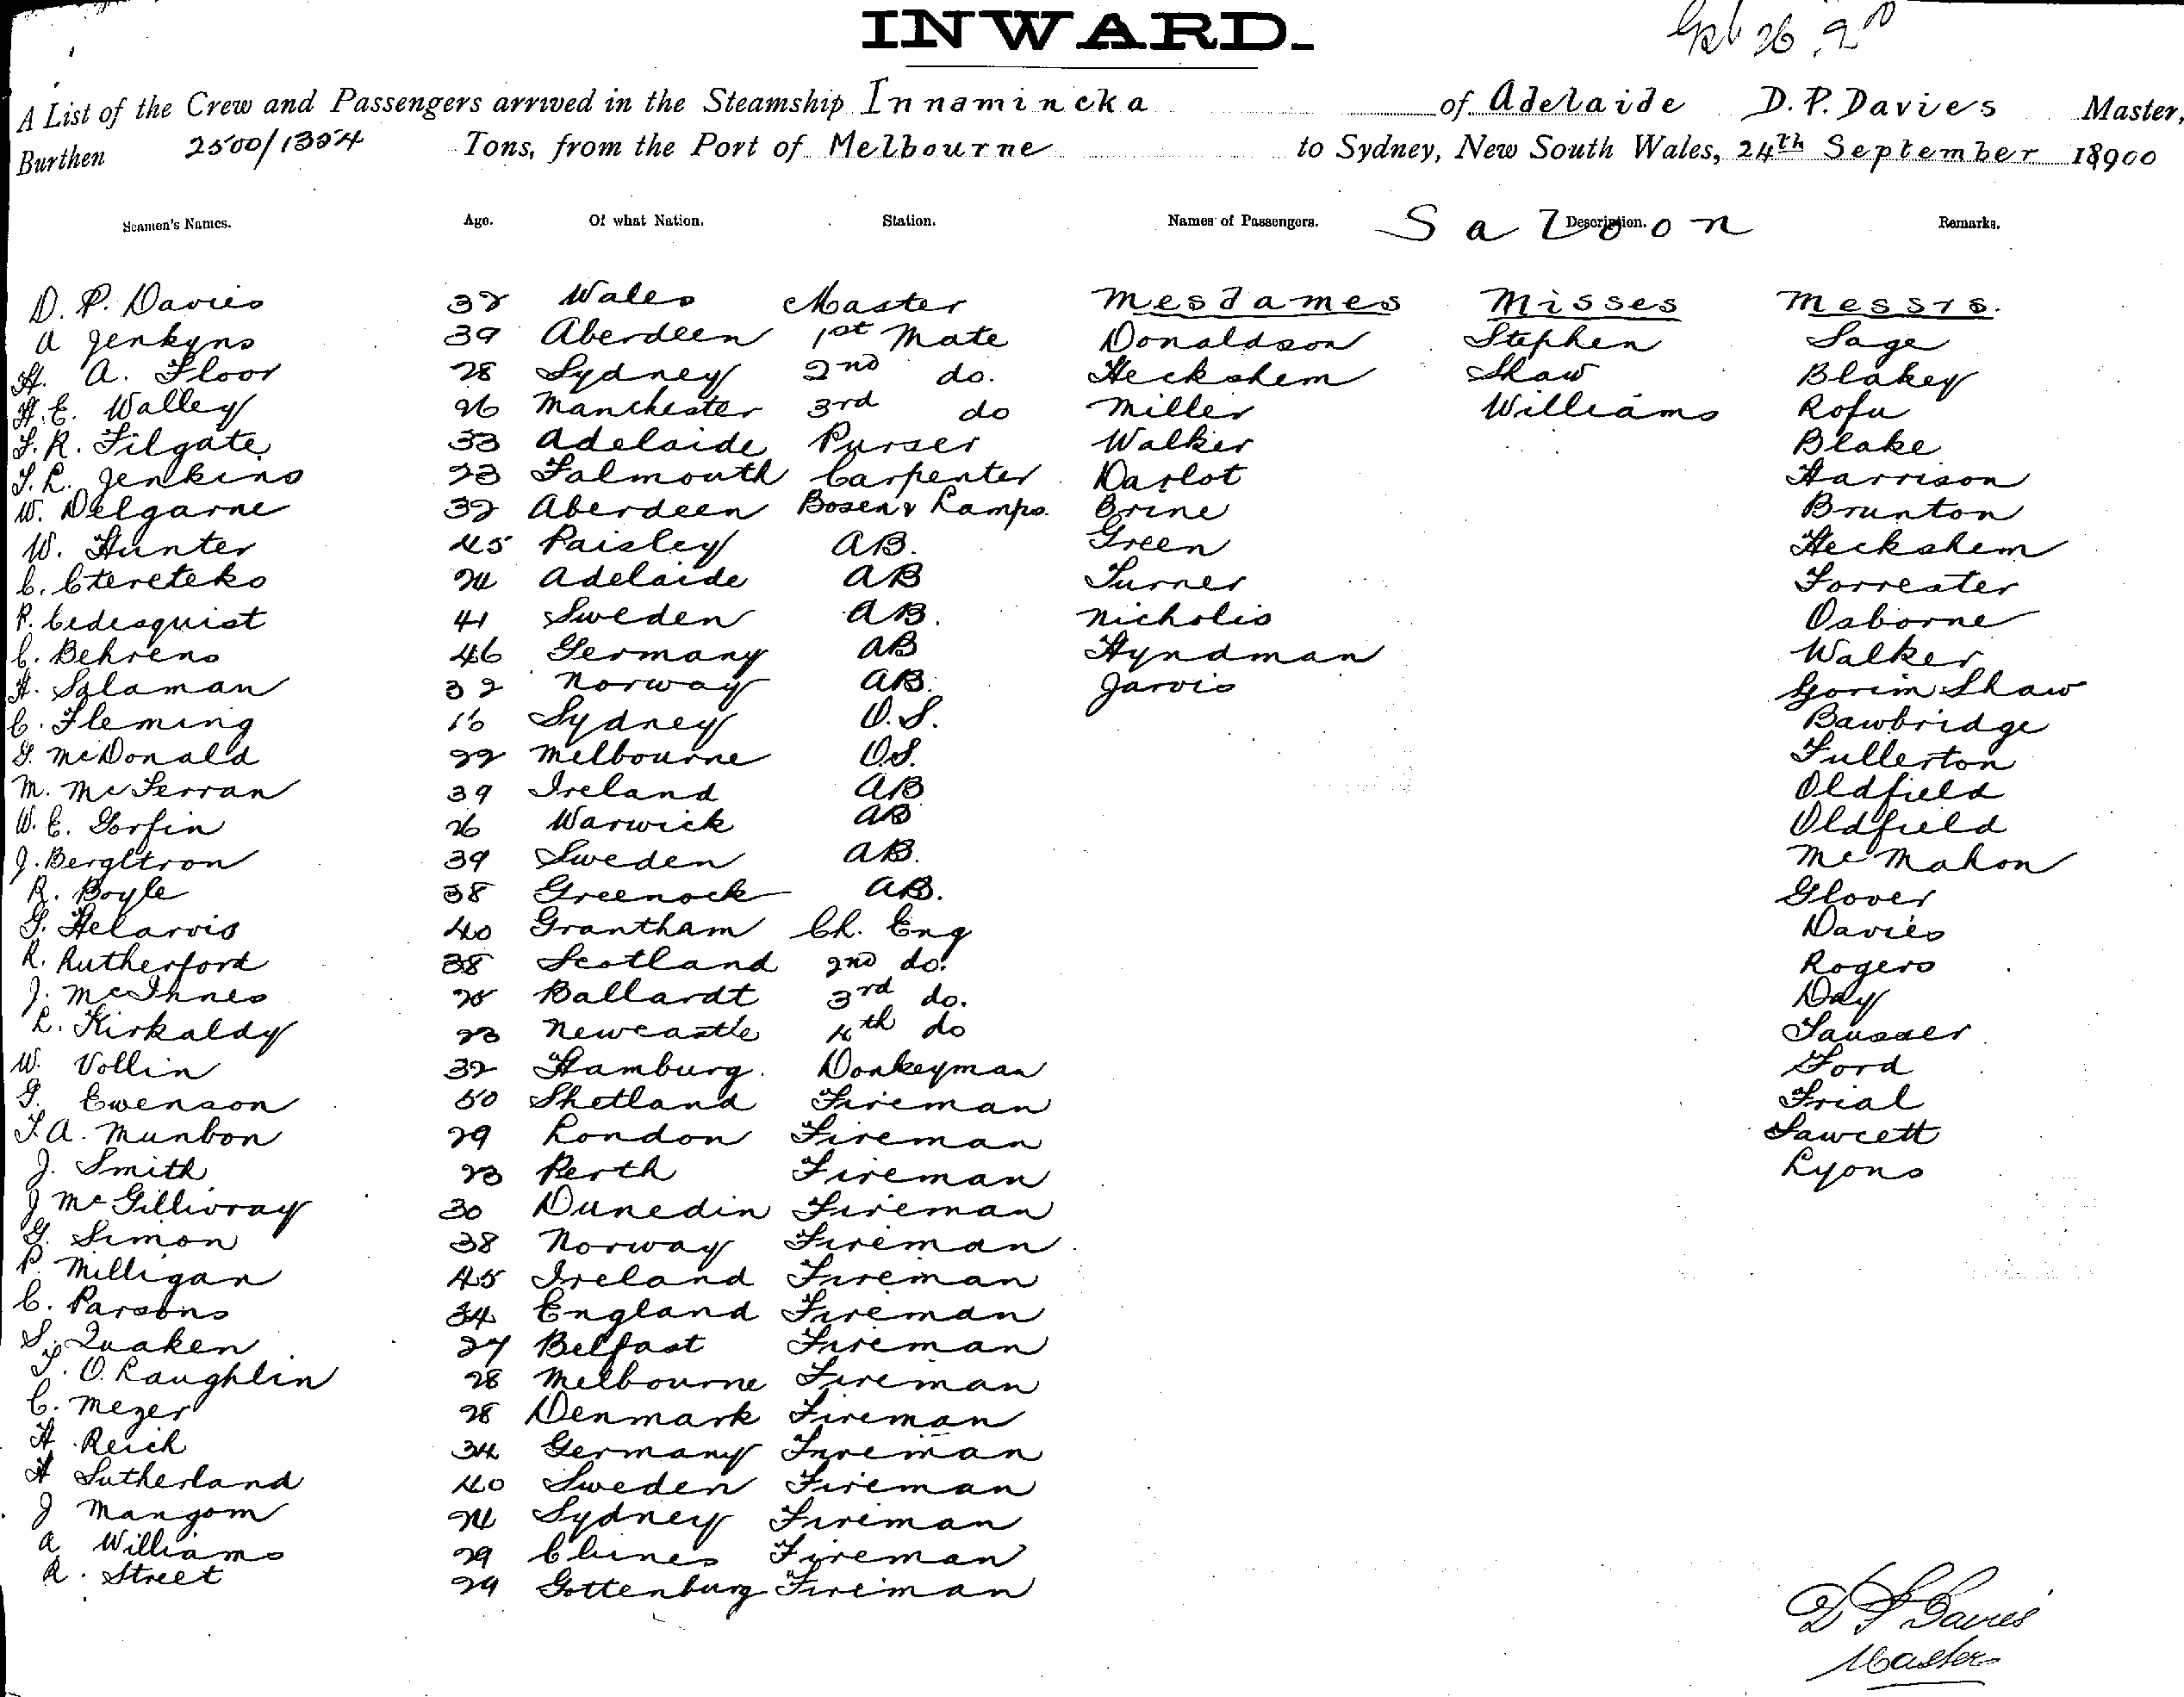 INWARD.
Sept 26 9 00
A List of the Crew and Passengers arrived in the Steamship Innamincka of Adelaide D. P. Davies Master,
Burthen 2500/1354 Tons, from the Port of Melbourne to Sydney, New South Wales, 24th September 18900
Seamen's Names. Age. Of what Nation. Station. Names of Passengers. Description. Saloon Remarks.
D. P. Davies 32 Wales Master Mesdames Misses Messrs.
A Jenkyns 39 Aberdeen 1st Mate Donaldson Stephen Sage
H. A. Floor 28 Sydney 2nd do. Heckshem Shaw Blakey
H. E. Walley 26 Manchester 3rd do Miller Williams Rofu
F. R. Filgate 33 Adelaide Purser Walker Blake
T. L. Jenkins 23 Falmouth Carpenter Darlot Harrison
W. Delgarne 32 Aberdeen Bosen & Lamps. Brine Brunton
W. Hunter 45 Paisley AB. Green Heckshem
C. Ctereteko 24 Adelaide AB Turner Forrester
P. Cedesquist 41 Sweden AB. Nicholis Osborne
C. Behrens 46 Germany AB Hyndman Walker
H. Salaman 32 Norway AB. Jarvis Gorim Shaw
C. Fleming 16 Sydney O.S. Bawbridge
G. McDonald 22 Melbourne O.S. Fullerton
M. McFerran 39 Ireland AB Oldfield
W. C. Gorfin 26 Warwick AB Oldfield
J. Bergltron 39 Sweden AB. McMahon
R. Boyle 38 Greenock AB. Glover
G. Helarvis 40 Grantham Ch. Eng Davies
R. Rutherford 38 Scotland 2nd do. Rogers
J. McInnes 25 Ballardt 3rd do. Day
L. Kirkaldy 23 Newcastle 4th do Sausser
W. Vollin 32 Hamburg. Donkeyman Ford
G. Ewenson 50 Shetland Fireman Frial
T. A. Munbon 29 London Fireman Fawcett
J. Smith 23 Perth Fireman Lyons
J McGillivray 30 Dunedin Fireman
G. Simon 38 Norway Fireman
P. Milligan 45 Ireland Fireman
C. Parsons 34 England Fireman
S. Quaken 27 Belfast Fireman
T. O. Laughlin 28 Melbourne Fireman
C. Mezer 28 Denmark Fireman
H Reich 34 Germany Fireman
H Sutherland 40 Sweden Fireman
J Mangom 24 Sydney Fireman
A Williams 29 Clunes Fireman
R. Street 29 Gottenburg Fireman
D P Davies
Master